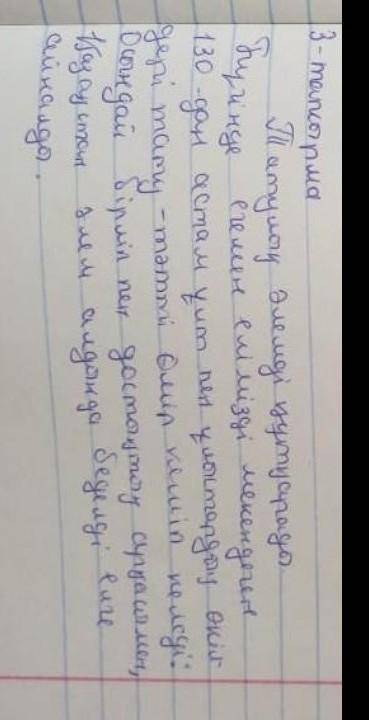 3-тапсырма
Татулық әлемді құтқарады.
Бүгінде егемен елімізді мекендеген
130-дан астам ұлт пен ұлыстардың өкіл-
дері тату-тәтті өмір кешіп келеді.
Осындай бірлік пен достықтың арқасымен,
Қазақстан әлем алдында беделді елге
айналды.